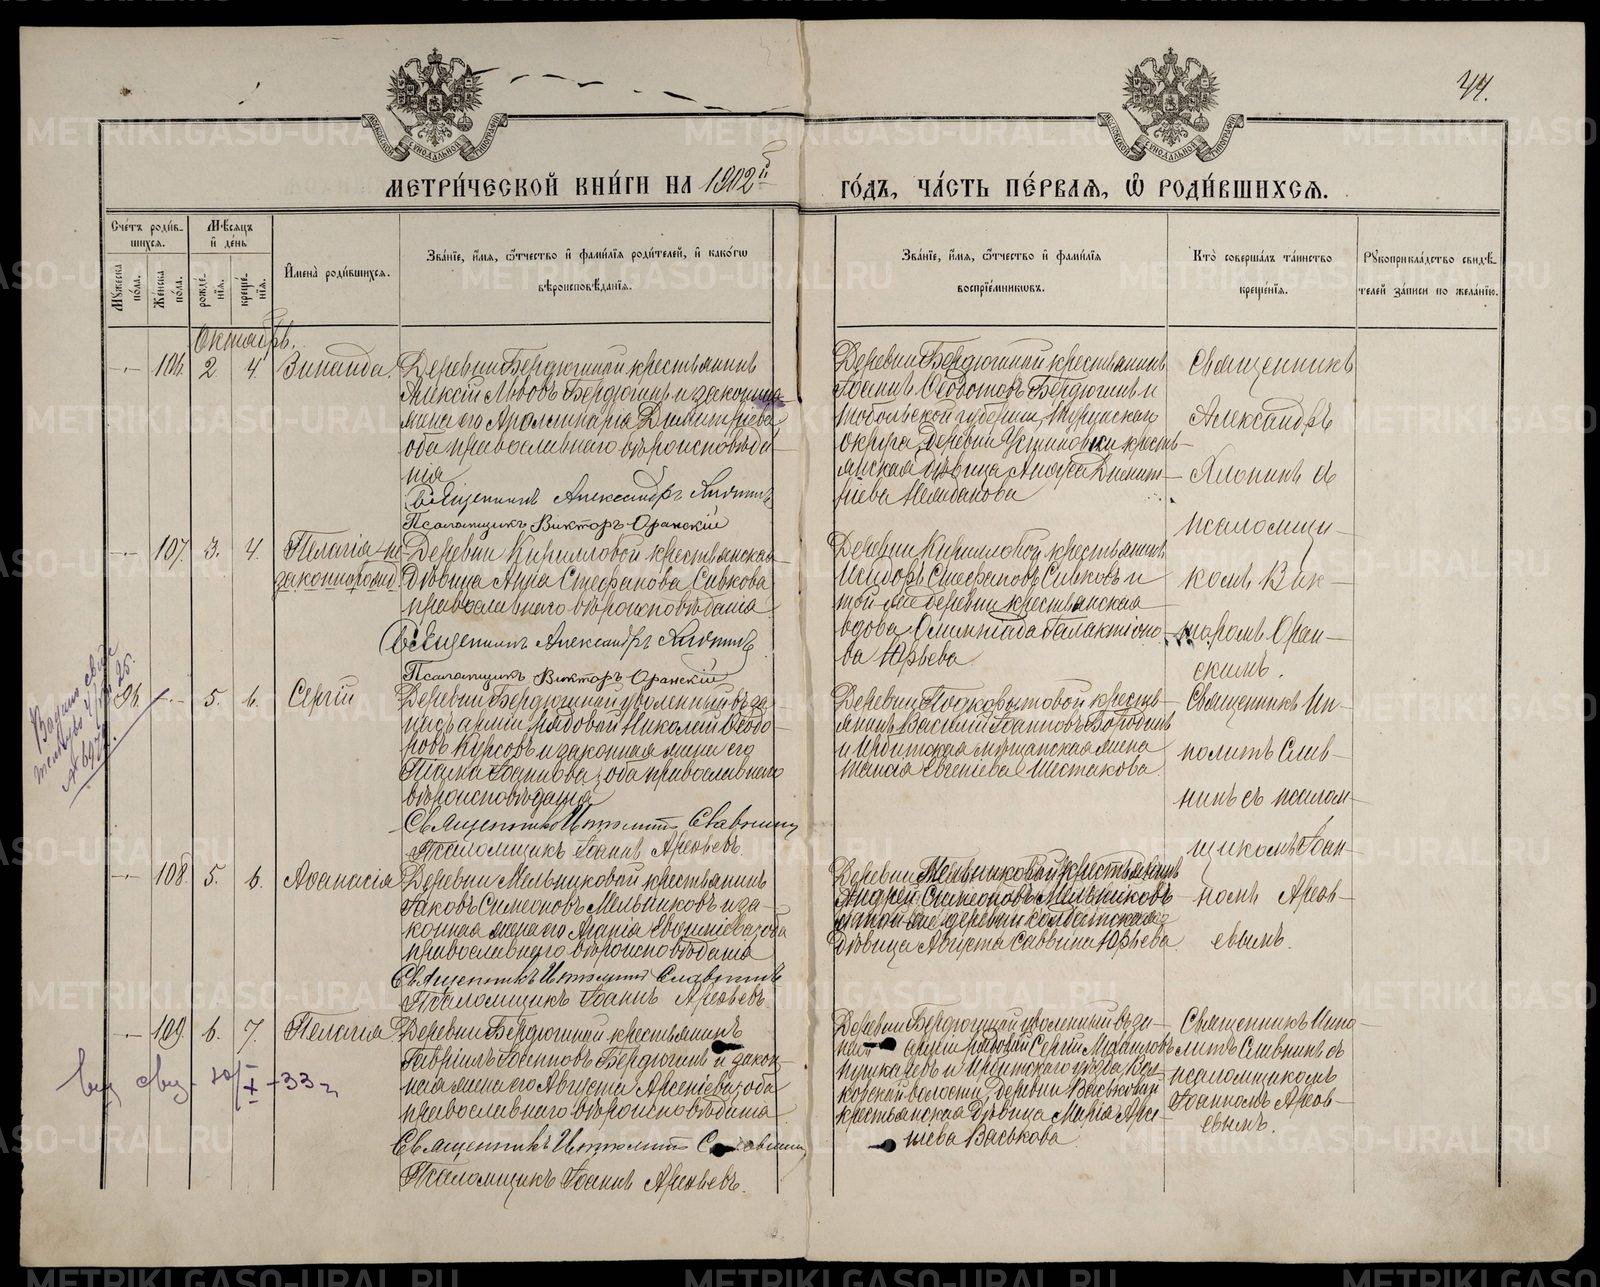 44.
МЕТРИ́ЧЕСКОЙ КНИ́ГИ НА 1902й ГО́ДЪ, ЧА́СТЬ ПЕ́РВАѦ, Ѡ҆ РОДИ́ВШИХСѦ.
Сче́тъ роди́в-
шихсѧ.
Мѣ́сѧцъ
и҆ де́нь
Мꙋ́жеска
по́ла.
Же́нска
по́ла.
рожде́-
нїѧ.
креще́-
нїѧ.
И҆мена̀ роди́вшихсѧ.
Зва́нїе, и҆́мѧ, ѻ҆́тчество и҆ фами́лїѧ роди́телей, и҆ како́гѡ
вѣроисповѣ́данїѧ.
Зва́нїе, и҆́мѧ, ѻ҆́тчество и҆ фами́лїѧ
воспрїе́мникѡвъ.
Кто̀ соверша́лъ та́инство
креще́нїѧ.
Рꙋкоприкла́дство свидѣ́-
телей за́писи по жела́нїю.
Октябрь.
106. 2. 4. Зинаида.
Деревни Бердюгиной крестьянинъ
Алексій Львовъ Бердюгинъ и законная
жена его Аполлинарія Димитріева
оба православнаго вѣроисповѣда-
нія
Священникъ Александръ
Псаломщикъ Викторъ Оранскій
Деревни Бердюгиной крестьянинъ
Іоаннъ Ѳедотовъ Бердюгинъ и
Тобольской губерніи, Туринскаго
округа, деревни Устиновки кресть-
янская дѣвица Анфуса Димит-
ріева
Священникъ
Александръ
съ
псаломщи-
комъ Вик-
торомъ Оран-
скимъ.
107. 3. 4. Пелагія не-
законнорожд.
Деревни Кирилловой крестьянская
дѣвица Анна Стефанова Сивкова
православнаго вѣроисповѣданія
Священникъ Александръ
Псаломщикъ Викторъ Оранскій
Деревни Кирилловой крестьянинъ
Исидоръ Стефановъ Сивковъ и
той же деревни крестьянская
вдова Олимпіада Галактіоно-
ва Юрьева
5. 6. Сергій
Деревни Бердюгиной уволенный въ за-
пасъ арміи рядовой Николай Ѳеодо-
ровъ Курсовъ и законная жена его
Іоаннова, оба православнаго
вѣроисповѣданія
Священникъ Ипполитъ Славнинъ
Псаломщикъ Іоаннъ Арефьевъ.
Деревни Подкорытовой кресть-
янинъ Василій Іоанновъ Бородинъ
и Ирбитская мѣщанская жена
Евгеніева Шестакова.
Священникъ Ип-
политъ Слав-
нинъ съ псалом-
щикомъ Іоан-
номъ Ареѳ-
евымъ.
108. 5. 6. Аѳанасія
Деревни Мельниковой крестьянинъ
Іаковъ Симеоновъ Мельниковъ и за-
конная жена его Агапія оба
православнаго вѣроисповѣданія
Священникъ Ипполитъ Славнинъ
Псаломщикъ Іоаннъ Арефьевъ
Деревни Мельниковой крестьянинъ
Андрей Симеоновъ Мельниковъ
дѣвица Августа Саввина Юрьева
109. 6. 7. Пелагія
Деревни Бердюгиной крестьянинъ
Гавріилъ Іоанновъ Бердюгинъ и закон-
ная жена его Августа Арсеніева, оба
православнаго вѣроисповѣданія
Священникъ Ипполитъ Славнинъ
Псаломщикъ Іоаннъ Арефьевъ.
Деревни Бердюгиной уволенный въ за-
пасъ арміи рядовой Сергій Михаиловъ
Пушкаревъ и Ирбитскаго уѣзда,
волости, деревни Васьковой
крестьянская дѣвица Марія Арсе-
ніева Васькова
Священникъ Иппо-
литъ Славнинъ съ
псаломщикомъ
Іоанномъ Ареѳ-
евымъ.
METRIKI.GASO-URAL.RU